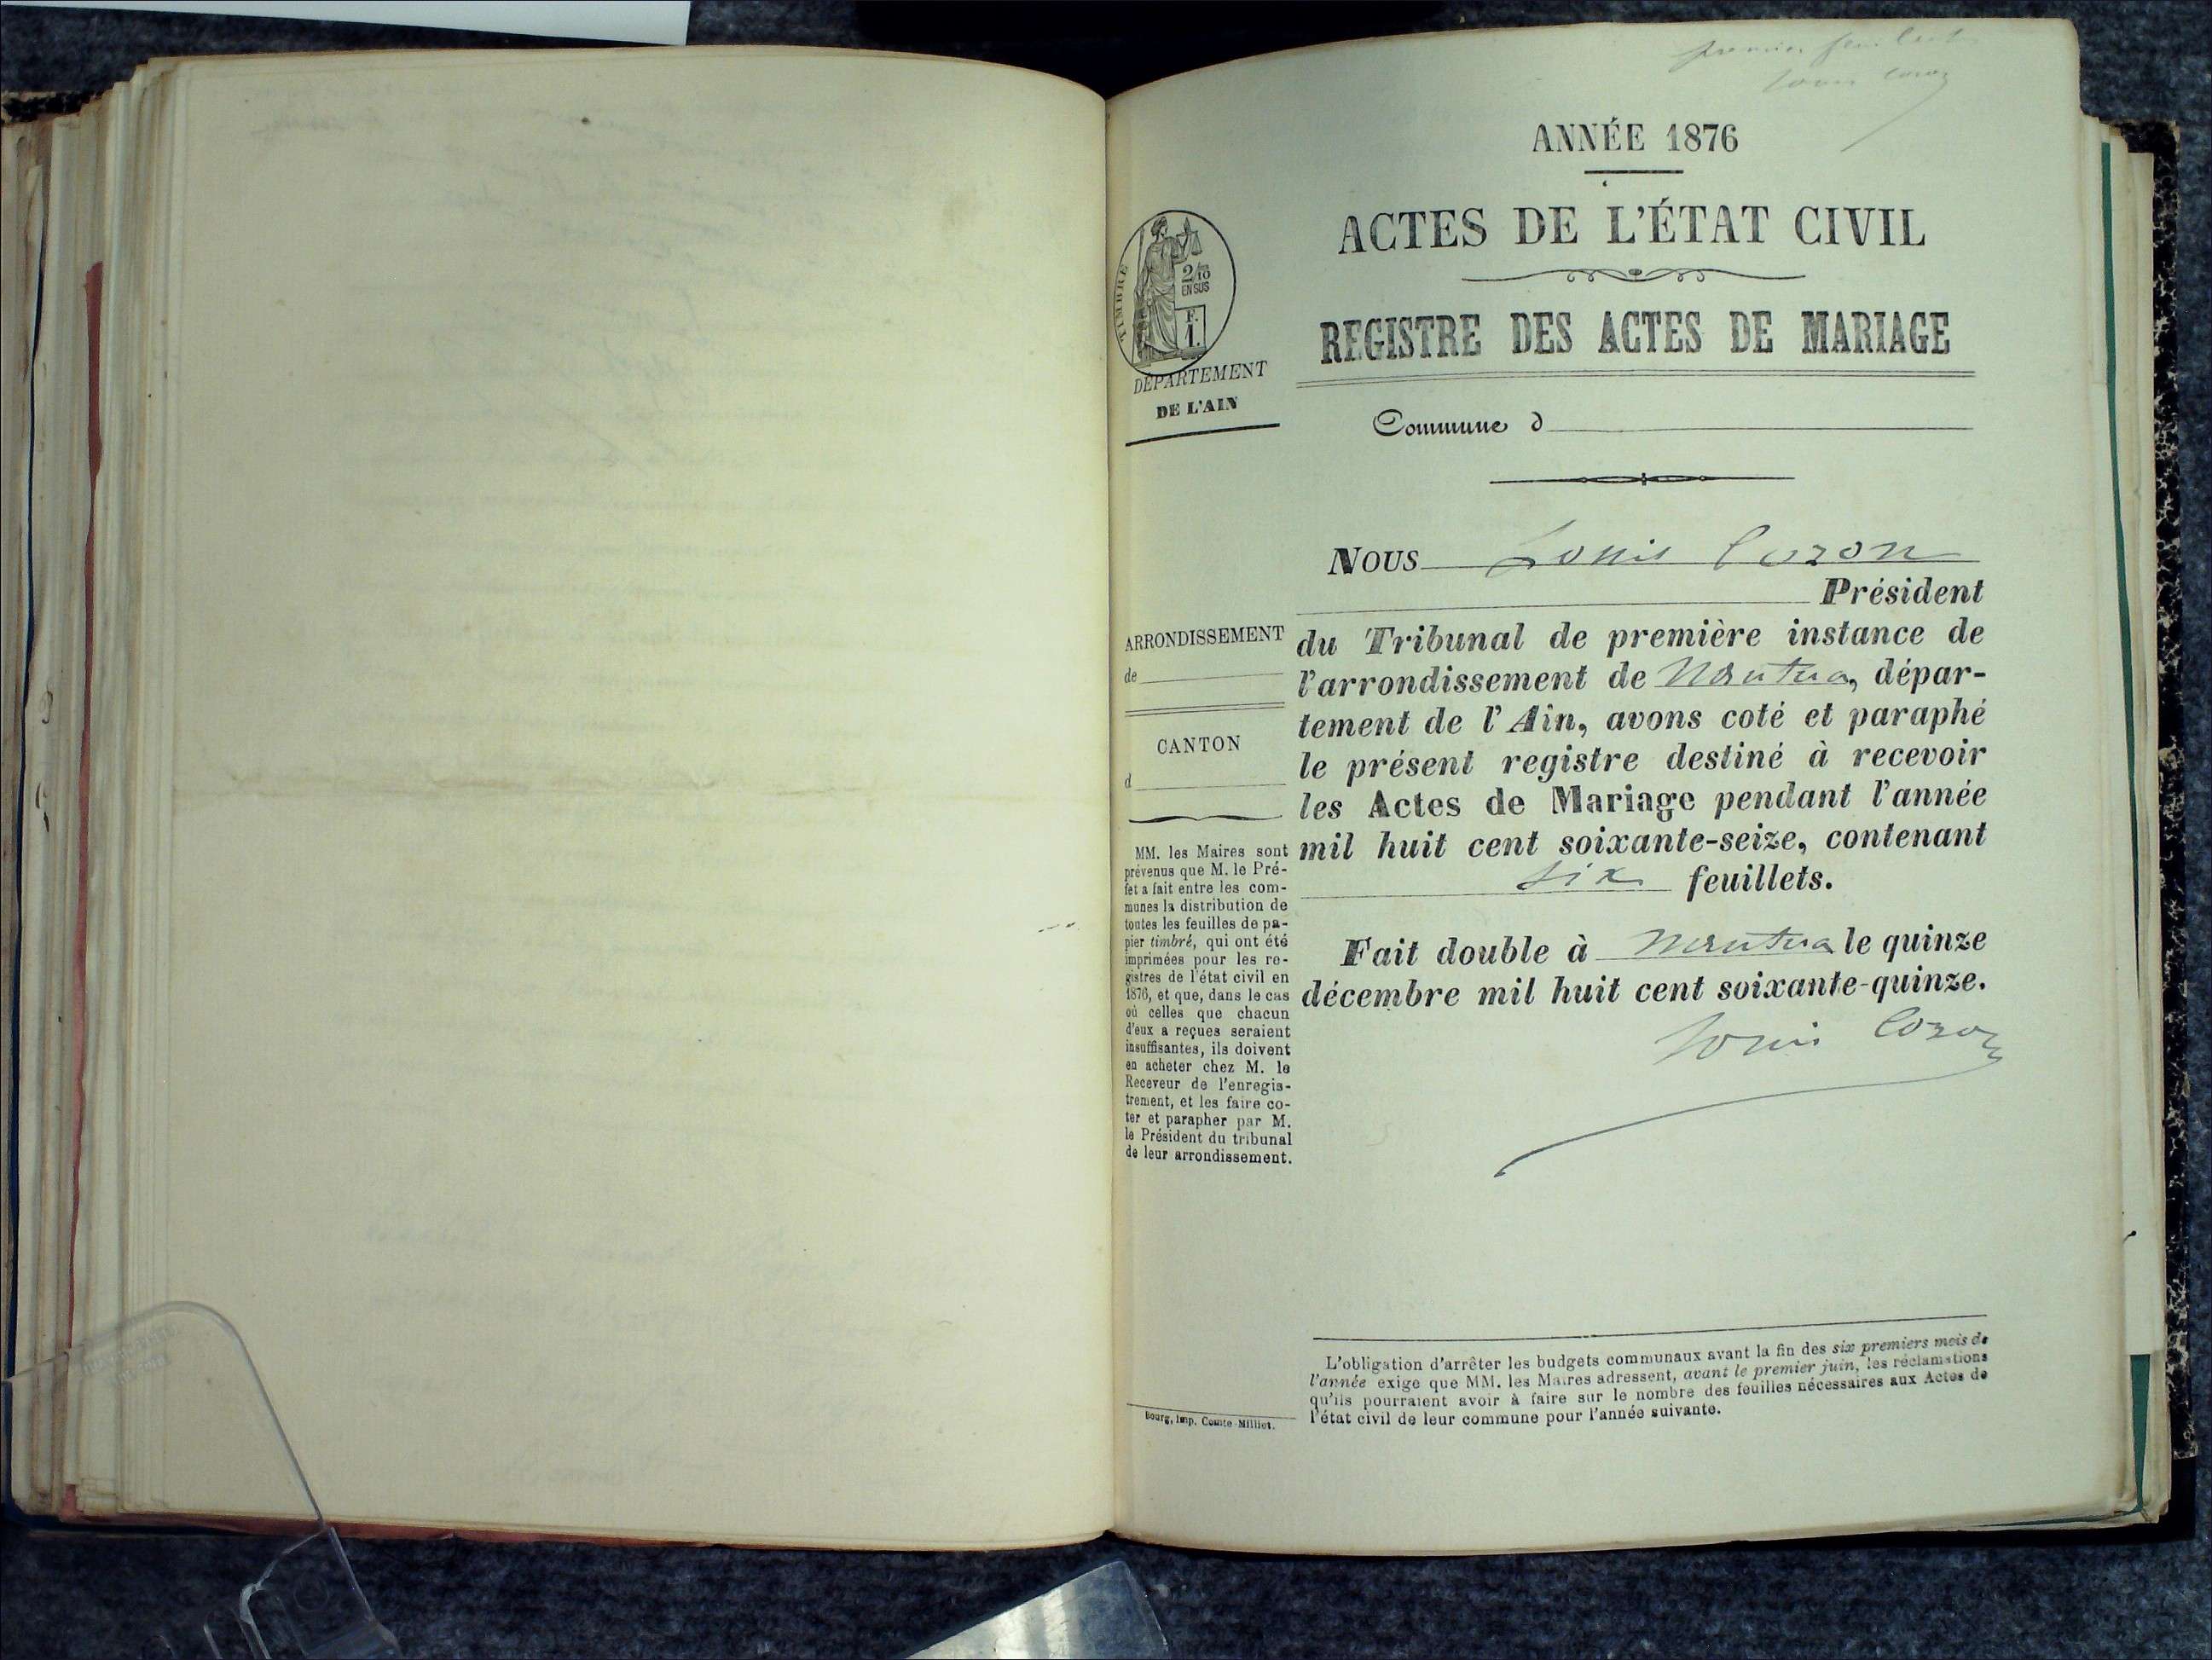 premier feuillet
Louis Coron
ANNÉE 1876
ACTES DE L'ÉTAT CIVIL
REGISTRE DES ACTES DE MARIAGE
TIMBRE
2/10
EN SUS
F.
1.
DÉPARTEMENT
DE L'AIN
Commune d
NOUS Louis Coron
Président
du Tribunal de première instance de
l'arrondissement de Nantua, dépar-
tement de l'Ain, avons coté et paraphé
le présent registre destiné à recevoir
les Actes de Mariage pendant l'année
mil huit cent soixante-seize, contenant
six feuillets.
Fait double à Nantua le quinze
décembre mil huit cent soixante-quinze.
Louis Coron
ARRONDISSEMENT
de
CANTON
d
MM. les Maires sont
prévenus que M. le Pré-
fet a fait entre les com-
munes la distribution de
toutes les feuilles de pa-
pier timbré, qui ont été
imprimées pour les re-
gistres de l'état civil en
1876, et que, dans le cas
où celles que chacun
d'eux a reçues seraient
insuffisantes, ils doivent
en acheter chez M. le
Receveur de l'enregis-
trement, et les faire co-
ter et parapher par M.
le Président du tribunal
de leur arrondissement.
L'obligation d'arrêter les budgets communaux avant la fin des six premiers mois de
l'année exige que MM. les Maires adressent, avant le premier juin, les réclamations
qu'ils pourraient avoir à faire sur le nombre des feuilles nécessaires aux Actes de
l'état civil de leur commune pour l'année suivante.
Bourg, imp. Comte-Milliet.